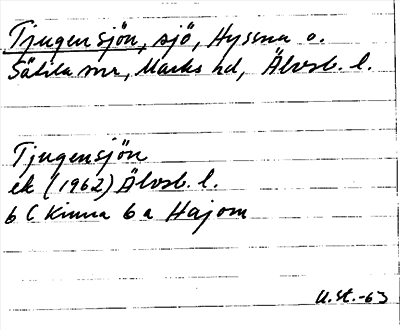 Tjugensjön, sjö, Hyssna o.
Sätila snr, Marks hd, Älvsb. l.
Tjugensjön
ek (1962) Älvsb. l.
6 C Kinna 6 a Hajom
U.St.-63